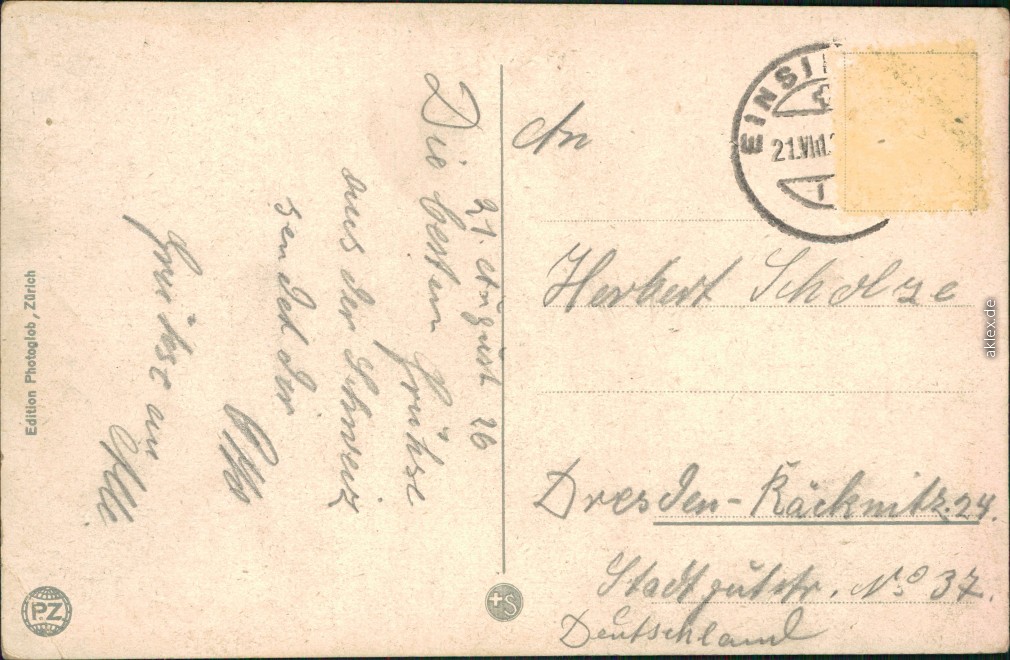 21. August 26
Die besten Grühse
aus der Schweiz
sendet der
Otto
Grühse an
Alli
Edition Photoglob, Zürich
PZ
+S
An
EINSI
21.VIII.
Herbert Scholze
Dresden-Räcknitz. 24.
Stadtgutstr. No 37.
Deutschland
aklex.de